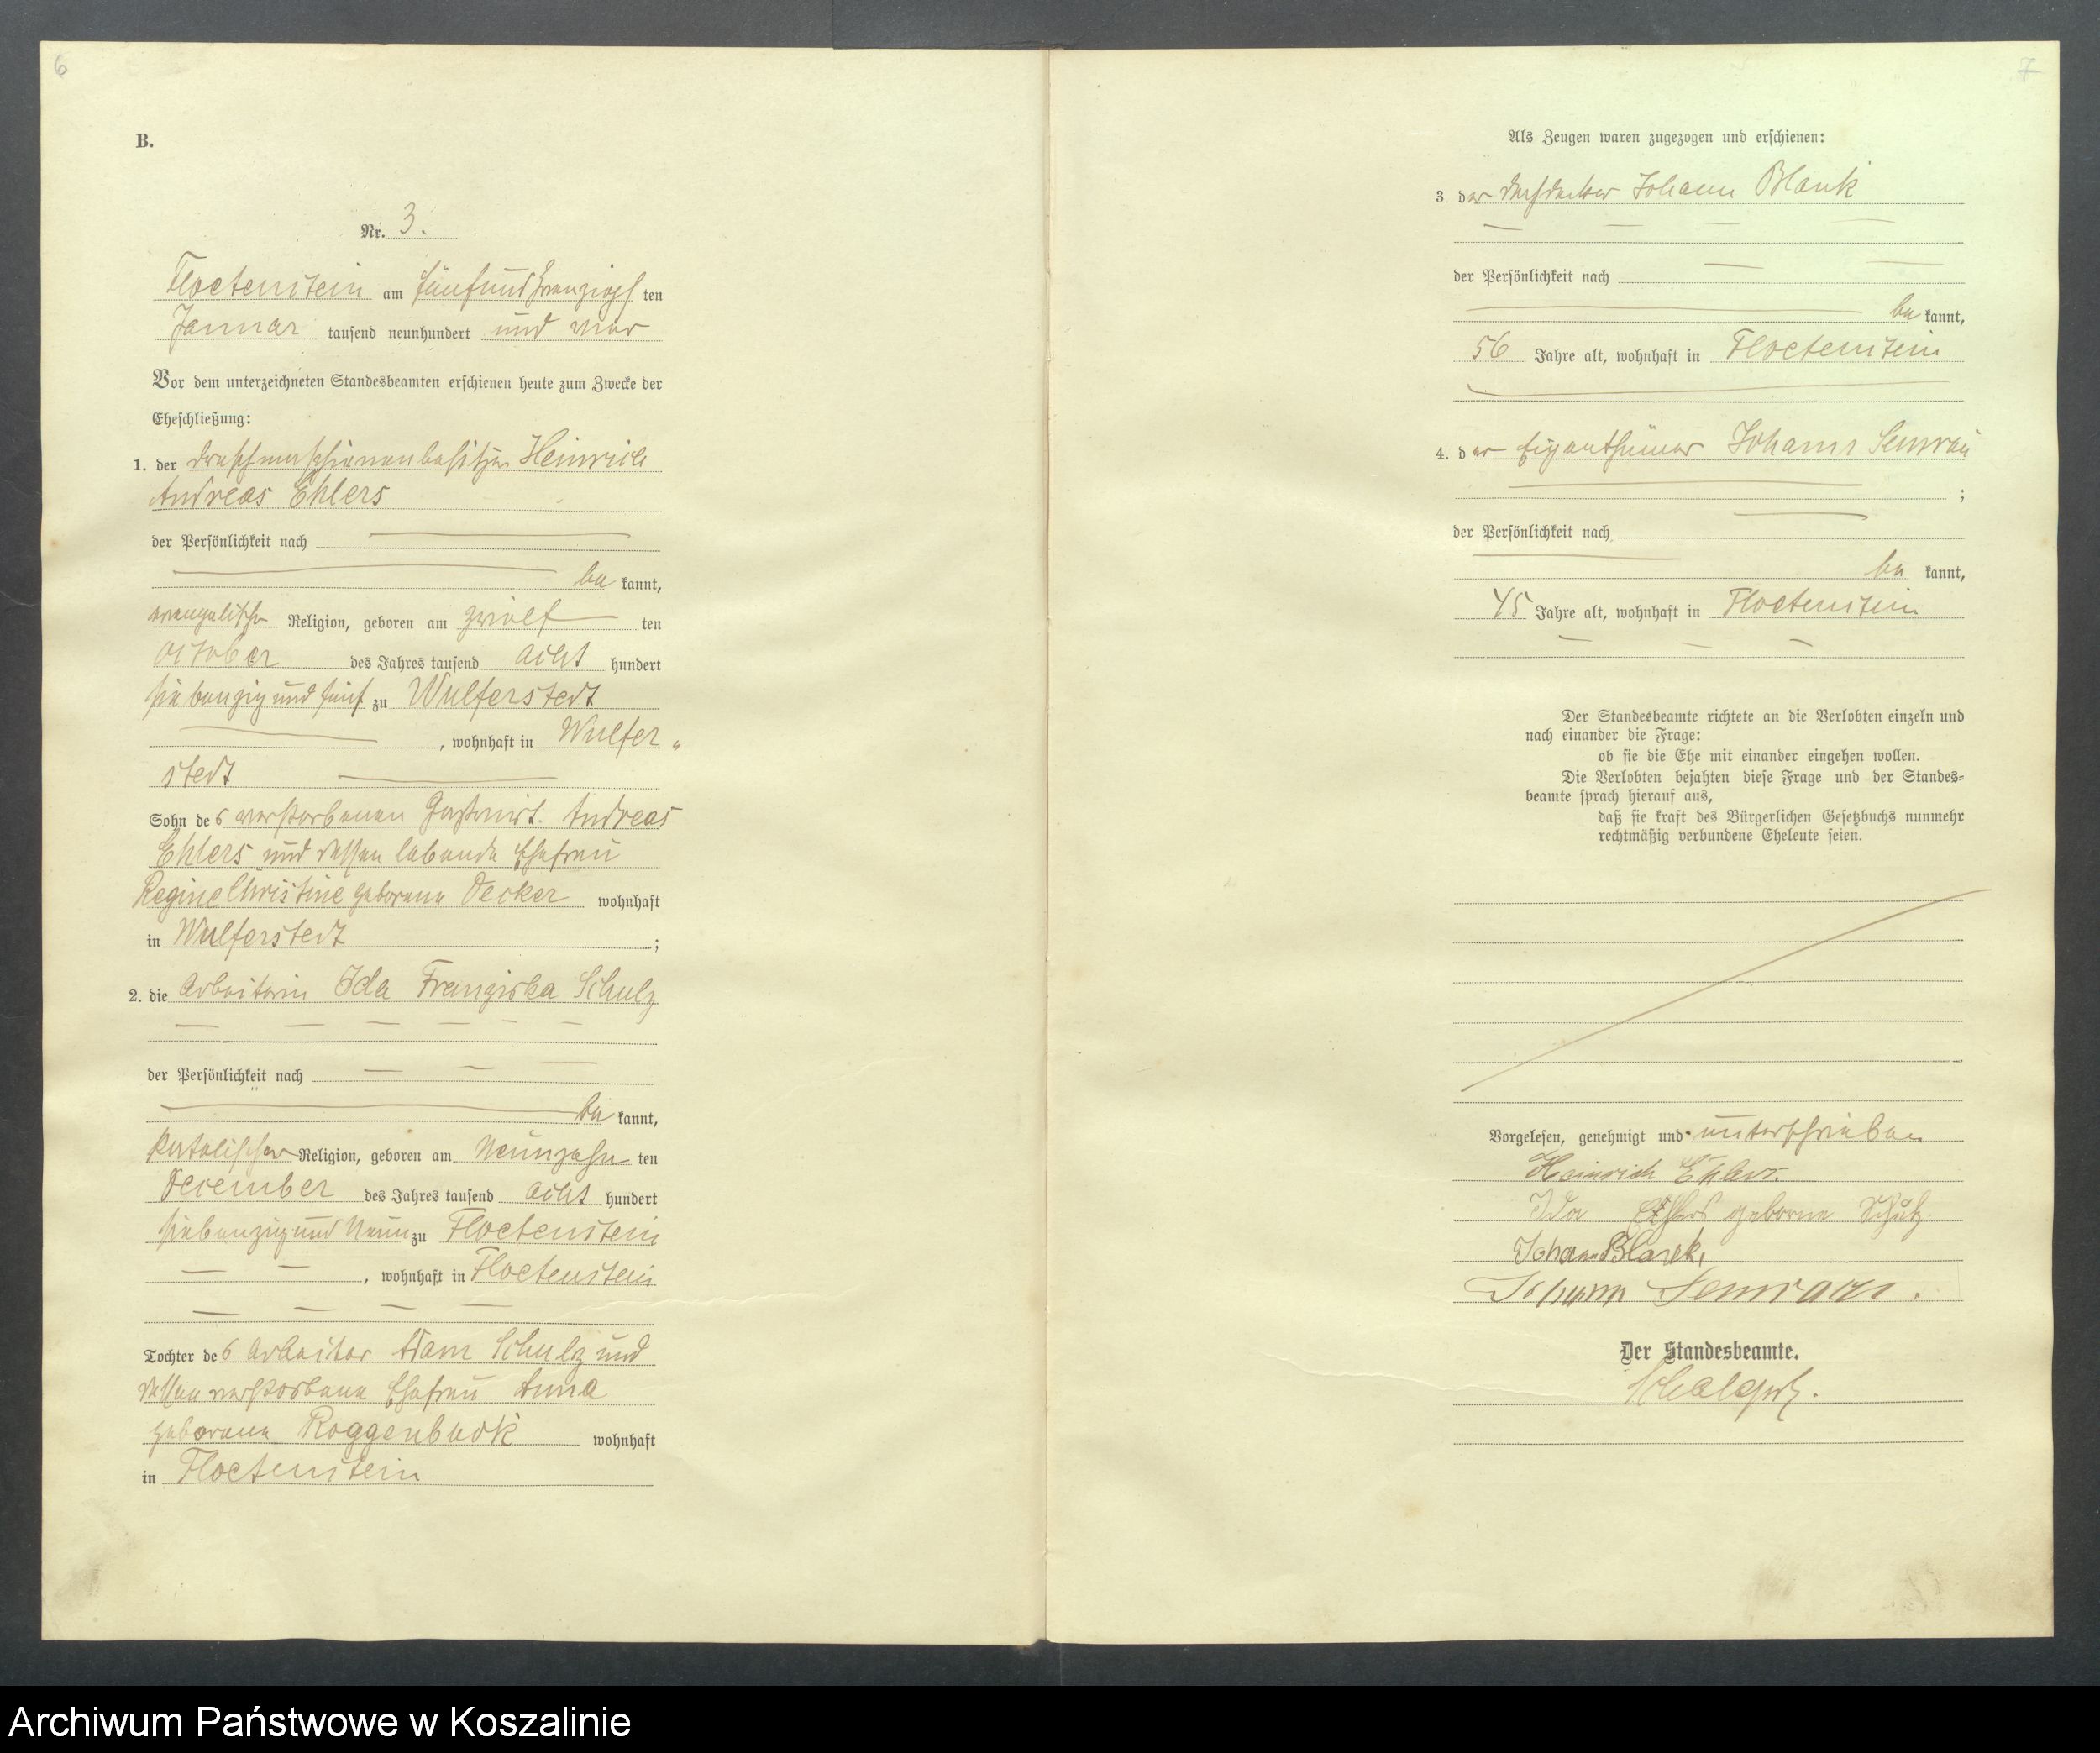 6
B.
Nr. 3.
Floetenstein am fünfundzwanzigsten
Januar tausend neunhundert und vier
Vor dem unterzeichneten Standesbeamten erschienen heute zum Zwecke der
Eheschließung:
1. der Dreschmaschienenbesitzer Heinrich
Andreas Ehlers
der Persönlichkeit nach
be kannt,
evangelischer Religion, geboren am zwölf ten
October des Jahres tausend acht hundert
siebenzig und fünf zu Wulferstedt
, wohnhaft in Wulfer „
stedt
Sohn des verstorbenen Gastwirt. Andreas
Ehlers und dessen lebende Ehefrau
Regine Christine geborene Decker wohnhaft
in Wulferstedt ;
2. die Arbeiterin Ida Franziska Schulz
der Persönlichkeit nach
be kannt,
katolischer Religion, geboren am neunzehn ten
December des Jahres tausend acht hundert
siebenzig und neun zu Floetenstein
, wohnhaft in Floetenstein
Tochter des Arbeiter Adam Schulz und
dessen verstorbene Ehefrau Anna
geborene Roggenbuck wohnhaft
in Floetenstein
7
Als Zeugen waren zugezogen und erschienen:
3. der Dachdecker Johann Blank
der Persönlichkeit nach
be kannt,
56 Jahre alt, wohnhaft in Floetenstein
4. der Eigenthümer Johann Semrau
;
der Persönlichkeit nach
be kannt,
45 Jahre alt, wohnhaft in Floetenstein
Der Standesbeamte richtete an die Verlobten einzeln und
nach einander die Frage:
ob sie die Ehe mit einander eingehen wollen.
Die Verlobten bejahten diese Frage und der Standes=
beamte sprach hierauf aus,
daß sie kraft des Bürgerlichen Gesetzbuchs nunmehr
rechtmäßig verbundene Eheleute seien.
Vorgelesen, genehmigt und unterschrieben
Heinrich Ehlers.
Ida Ehlers geborne Schulz.
Johann Blank
Johann Semrau.
Der Standesbeamte.
Archiwum Państwowe w Koszalinie